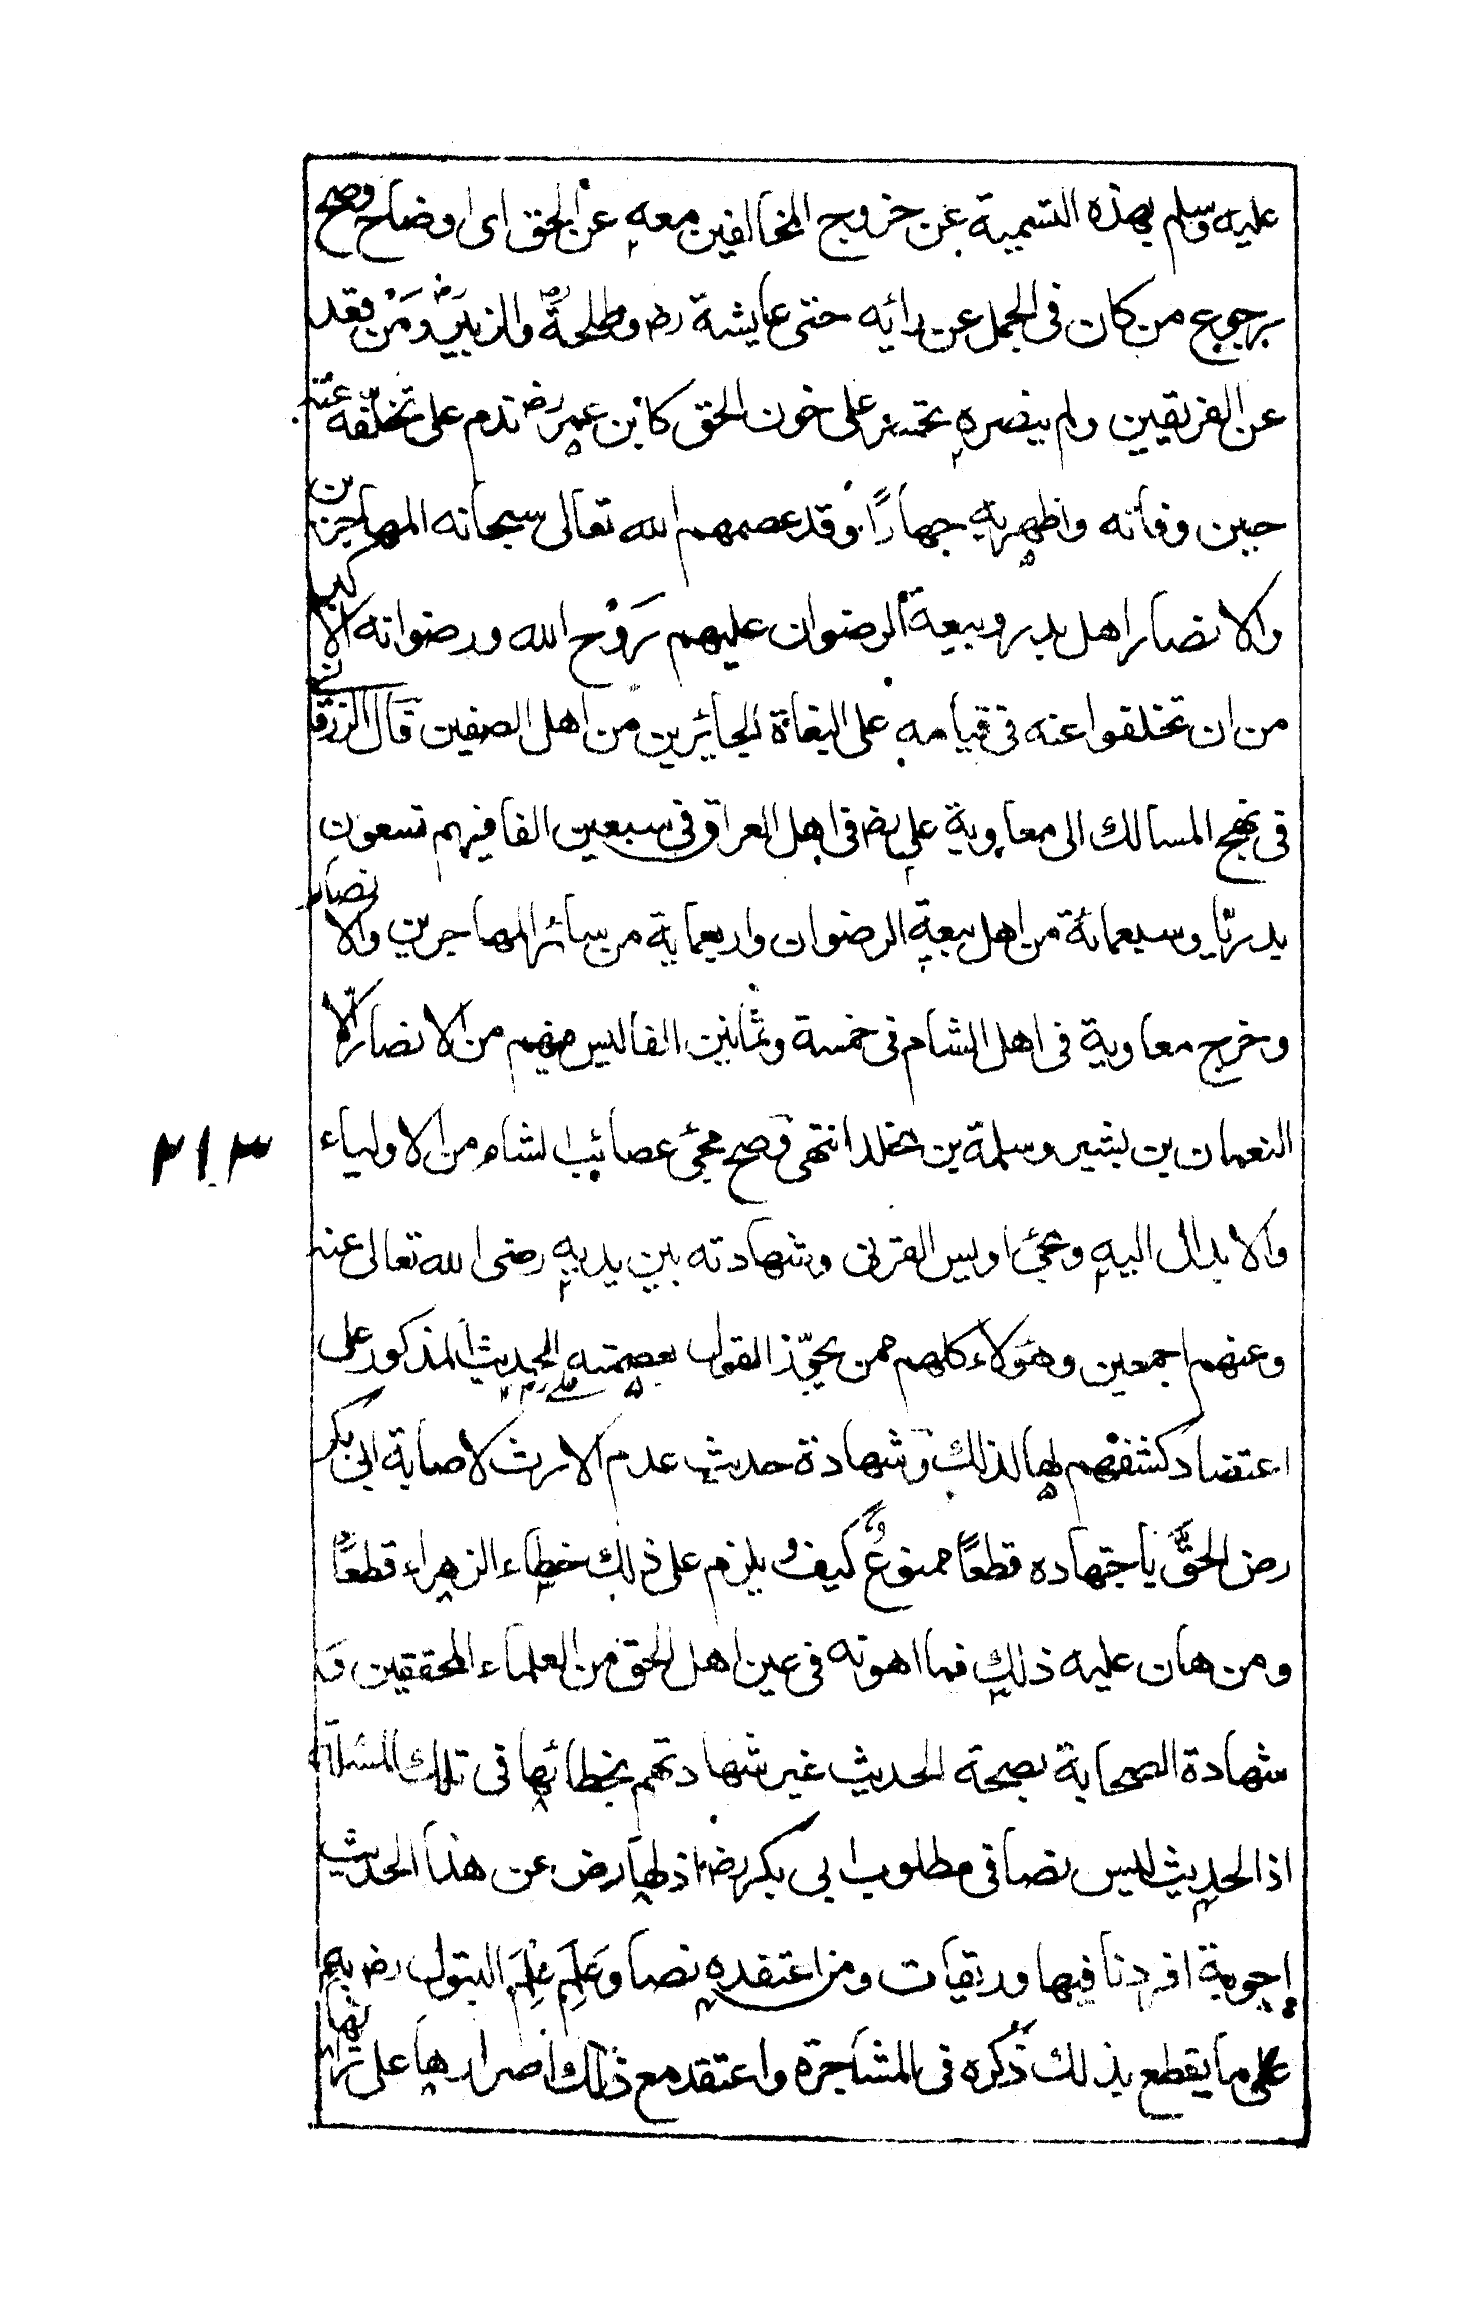 عليه وسلم بهذه التسمية عن خروج المخالفين معه عن الحق اى ايضاح وصح
برجوع من كان فى الجمل عن رائه حتى عايشة رض وطلحة والزبير ومن قعد
عن الفريقين ولم ينصره تحسر على خون الحق كابن عمر رض ندم على تخلفه عنه
حين وفاته واظهر به جهارًا وقد عصمهم الله تعالى سبحانه المهاجرين
والانصار اهل بدر وبيعة الرضوان عليهم رَوْح الله ورضوانه الاكبر
من ان تخلفوا عنه فى قيامه على البغاة الجائرين من اهل الصفين قال الزرقانى
فى نهج المسالك الى معاوية على رض فى اهل العراق فى سبعين الفا فيهم تسعون
بدريًا وسبعمائة من اهل بيعة الرضوان واربعماية من سائر المهاجرين والانصار
وخرج معاوية فى اهل الشام فى خمسة وثمانين الفا ليس فيهم من الانصار الّا
النعمان بن بشير وسلمة بن مخلد انتهى وصح مجئ عصائب الشام من الاولياء
والابدال اليه ومجئ اويس القرنى وشهادته بين يديه رضى الله تعالى عنه
وعنهم اجمعين وهؤلاء كلهم ممن يجوّز القول بعصمته الحديث المذكور على
اعتضاد كشفهم لها لذلك وشهادة حديث عدم الارث لاصابة ابى بكر
رض الحقَّ باجتهاده قطعًا ممنوعٌ كيف و يلزم على ذلك خطاء الزهراء قطعًا
ومن هان عليه ذلك فما اهونه فى عين اهل الحق من العلماء المحققين و
شهادة الصحابة بصحة الحديث غير شهادتهم بخطائها فى تلك المسئلة
اذ الحديث ليس نصا فى مطلوب ابى بكر رض اذ لها رض عن هذا الحديث
اجوبة افردنا فيها وريقات ومن اعتقده نصا وعَلِمَ عِلْمَ البتول رض به
على ما يقطع بذلك ذكره فى المشاجرة واعتقد مع ذلك اصرارها على تراثها
٢١٣